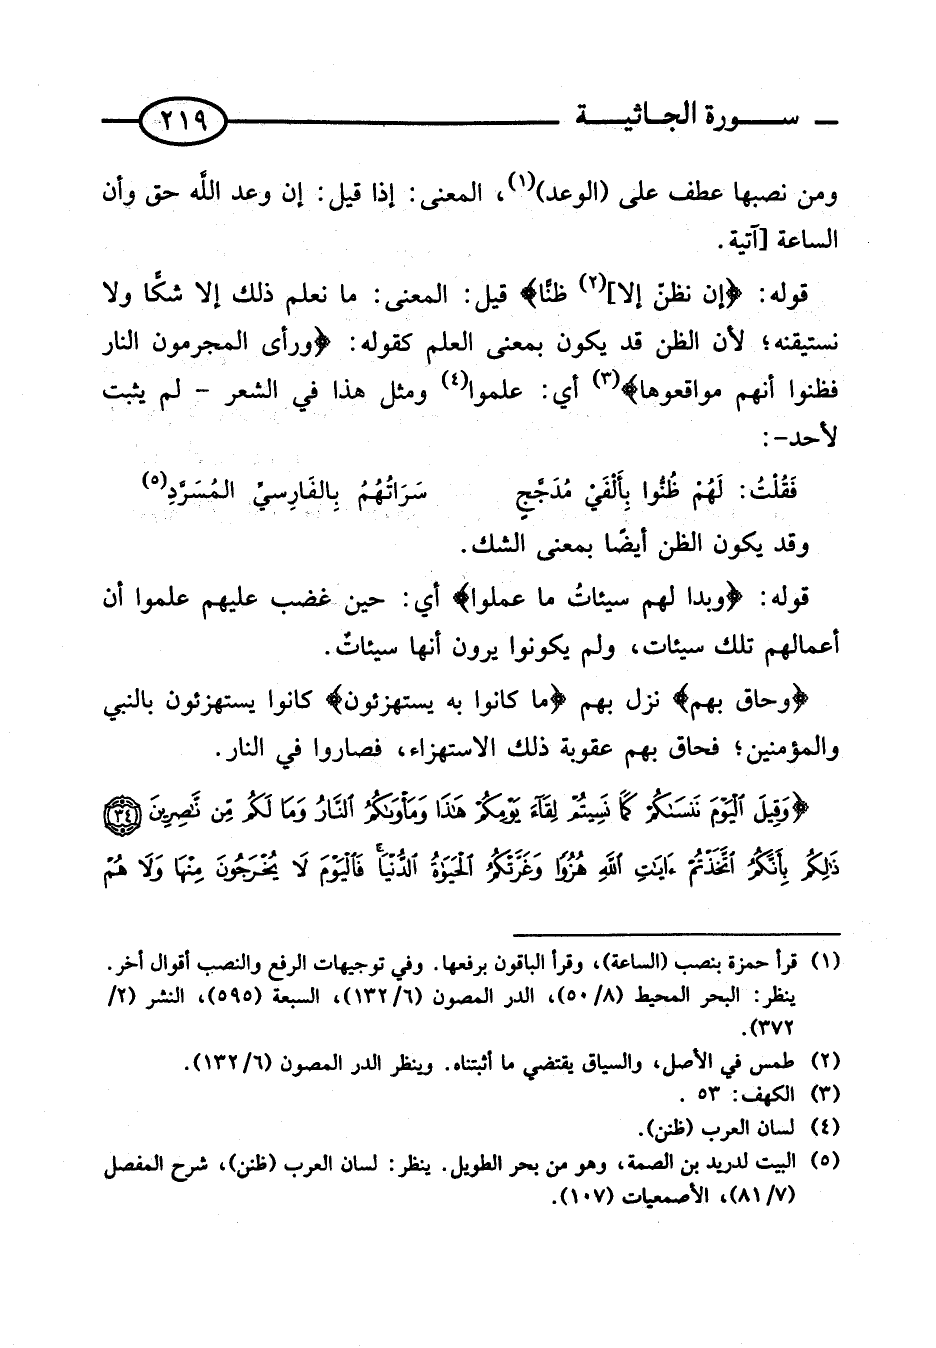 سورة الجاثية ٢١٩
ومن نصبها عطف على (الوعد)(١)، المعنى: إذا قيل: إن وعد اللَّه حق وأن
الساعة [آتية.
قوله: ﴿إن نظنّ إلا](٢) ظنًّا﴾ قيل: المعنى: ما نعلم ذلك إلا شكًّا ولا
نستيقنه؛ لأن الظن قد يكون بمعنى العلم كقوله: ﴿ورأى المجرمون النار
فظنوا أنهم مواقعوها﴾(٣) أي: علموا(٤) ومثل هذا في الشعر - لم يثبت
لأحد-:
فَقُلْتُ: لَهُمْ ظُنُّوا بِأَلْفَيْ مُدَجَّجٍ سَرَاتُهُمُ بِالفَارِسيِّ المُسَرَّدِ(٥)
وقد يكون الظن أيضًا بمعنى الشك.
قوله: ﴿وبدا لهم سيئاتُ ما عملوا﴾ أي: حين غضب عليهم علموا أن
أعمالهم تلك سيئات، ولم يكونوا يرون أنها سيئاتٌ.
﴿وحاق بهم﴾ نزل بهم ﴿ما كانوا به يستهزئون﴾ كانوا يستهزئون بالنبي
والمؤمنين؛ فحاق بهم عقوبة ذلك الاستهزاء، فصاروا في النار.
﴿وَقِيلَ ٱلْيَوْمَ نَنسَىٰكُمْ كَمَا نَسِيتُمْ لِقَآءَ يَوْمِكُمْ هَٰذَا وَمَأْوَىٰكُمُ ٱلنَّارُ وَمَا لَكُم مِّن نَّٰصِرِينَ ٣٤
ذَٰلِكُم بِأَنَّكُمُ ٱتَّخَذْتُمْ ءَايَٰتِ ٱللَّهِ هُزُوًا وَغَرَّتْكُمُ ٱلْحَيَوٰةُ ٱلدُّنْيَا ۚ فَٱلْيَوْمَ لَا يُخْرَجُونَ مِنْهَا وَلَا هُمْ
(١) قرأ حمزة بنصب (الساعة)، وقرأ الباقون برفعها. وفي توجيهات الرفع والنصب أقوال أخر.
ينظر: البحر المحيط (٥٠/٨)، الدر المصون (١٣٢/٦)، السبعة (٥٩٥)، النشر (٢/
٣٧٢).
(٢) طمس في الأصل، والسياق يقتضي ما أثبتناه. وينظر الدر المصون (١٣٢/٦).
(٣) الكهف: ٥٣ .
(٤) لسان العرب (ظنن).
(٥) البيت لدريد بن الصمة، وهو من بحر الطويل. ينظر: لسان العرب (ظنن)، شرح المفصل
(٨١/٧)، الأصمعيات (١٠٧).